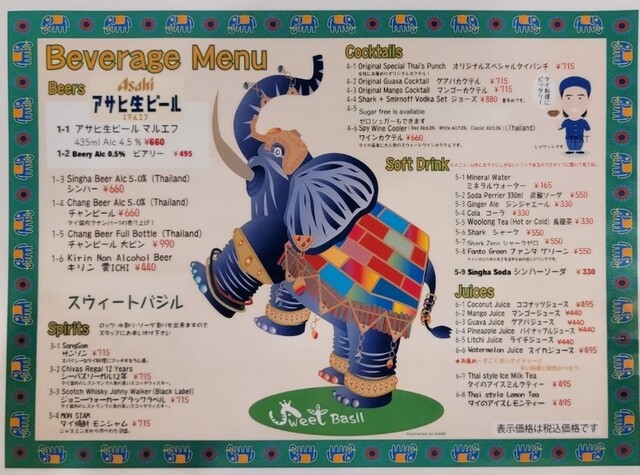 Beverage Menu
Beers
Asahi
アサヒ生ビール
マルエフ
1-1 アサヒ生ビール マルエフ
435ml Alc 4.5 % ¥660
1-2 Beery Alc 0.5% ビアリー ¥495
1-3 Singha Beer Alc 5.0% (Thailand)
シンハー ¥660
1-4 Chang Beer Alc 5.0% (Thailand)
チャンビール ¥660
1-5 Chang Beer Full Bottle (Thailand)
チャンビール 大ビン ¥990
1-6 Kirin Non Alcohol Beer
キリン 零ICHI ¥440
スウィートバジル
Spirits
ロック・水割り・ソーダ割りも出来ますので
スタッフにお申し付け下さい
3-1 SangSom
サンソン ¥715
3-2 Chivas Regal 12 Years
シーバスリーガル12年 ¥715
3-3 Scotch Whisky Johny Walker (Black Label)
ジョニーウォーカー ブラックラベル ¥715
3-4 MON SIAM
タイ焼酎 モンシャム ¥715
Cocktails
4-1 Original Special Thai's Punch オリジナルスペシャルタイパンチ ¥715
4-2 Original Guava Cocktail グアバカクテル ¥715
4-3 Original Mango Cocktail マンゴーカクテル ¥715
4-4 Shark + Smirnoff Vodka Set ジョーズ ¥880
4-5 Sugar free is available
ゼロシュガーもできます
4-6 Spy Wine Cooler (Thailand)
ワインカクテル ¥660
タイ料理に
ビックリー
Soft Drink
5-1 Mineral Water
ミネラルウォーター ¥165
5-2 Soda Perrier 330ml 炭酸ソーダ ¥550
5-3 Ginger Ale ジンジャエール ¥330
5-4 Cola コーラ ¥330
5-5 Woolong Tea (Hot or Cold) 烏龍茶 ¥330
5-6 Shark シャーク ¥550
5-7 Shark Zero シャークゼロ ¥550
5-8 Fanta Green ファンタ グリーン ¥550
5-9 Singha Soda シンハーソーダ ¥330
Juices
6-1 Coconut Juice ココナッツジュース ¥495
6-2 Mango Juice マンゴージュース ¥440
6-3 Guava Juice グアバジュース ¥440
6-4 Pineapple Juice パイナップルジュース ¥440
6-5 Litchi Juice ライチジュース ¥440
6-6 Watermelon Juice スイカジュース ¥495
6-7 Thai style Ice Milk Tea
タイのアイスミルクティー ¥495
6-8 Thai style Lemon Tea
タイのアイスレモンティー ¥495
Sweet Basil
表示価格は税込価格です